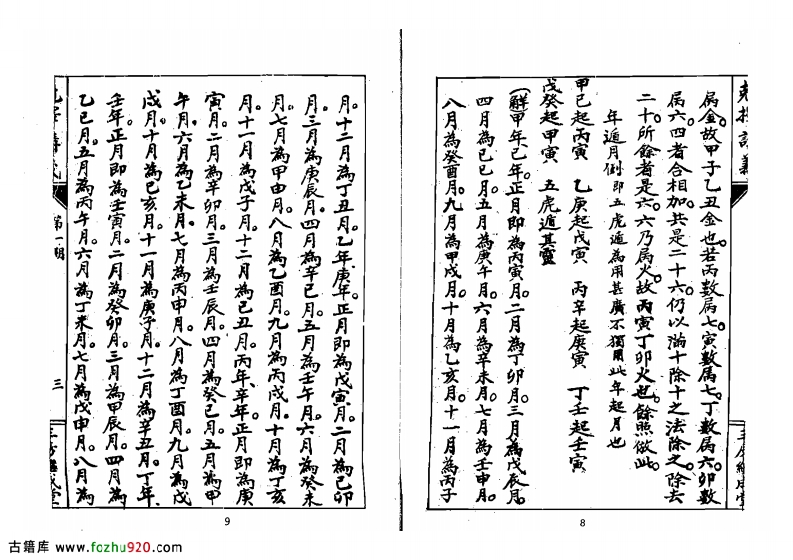 屬金。故甲子乙丑金也。若丙數屬七。寅數屬七。丁數屬六。卯數
屬六。四者合相加。共是二十六。仍以滿十除十之法除之。除去
二十。所餘者是六。六乃屬火。故丙寅丁卯火也。餘照倣此。
年遁月例 即五虎遁為用甚廣不獨用此年起月也
甲己起丙寅 乙庚起戊寅 丙辛起庚寅 丁壬起壬寅
戊癸起甲寅 五虎遁其靈
(解)甲年己年。正月即為丙寅月。二月為丁卯月。三月為戊辰月。
四月為己巳月。五月為庚午月。六月為辛未月。七月為壬申月。
八月為癸酉月。九月為甲戌月。十月為乙亥月。十一月為丙子
8
月。十二月為丁丑月。乙年庚年。正月即為戊寅月。二月為己卯
月。三月為庚辰月。四月為辛巳月。五月為壬午月。六月為癸未
月。七月為甲申月。八月為乙酉月。九月為丙戌月。十月為丁亥
月。十一月為戊子月。十二月為己丑月。丙年辛年。正月即為庚
寅月。二月為辛卯月。三月為壬辰月。四月為癸巳月。五月為甲
午月。六月為乙未月。七月為丙申月。八月為丁酉月。九月為戊
戌月。十月為己亥月。十一月為庚子月。十二月為辛丑月。丁年
壬年。正月即為壬寅月。二月為癸卯月。三月為甲辰月。四月為
乙巳月。五月為丙午月。六月為丁未月。七月為戊申月。八月為
第一期
三
9
古籍库 www.fozhu920.com